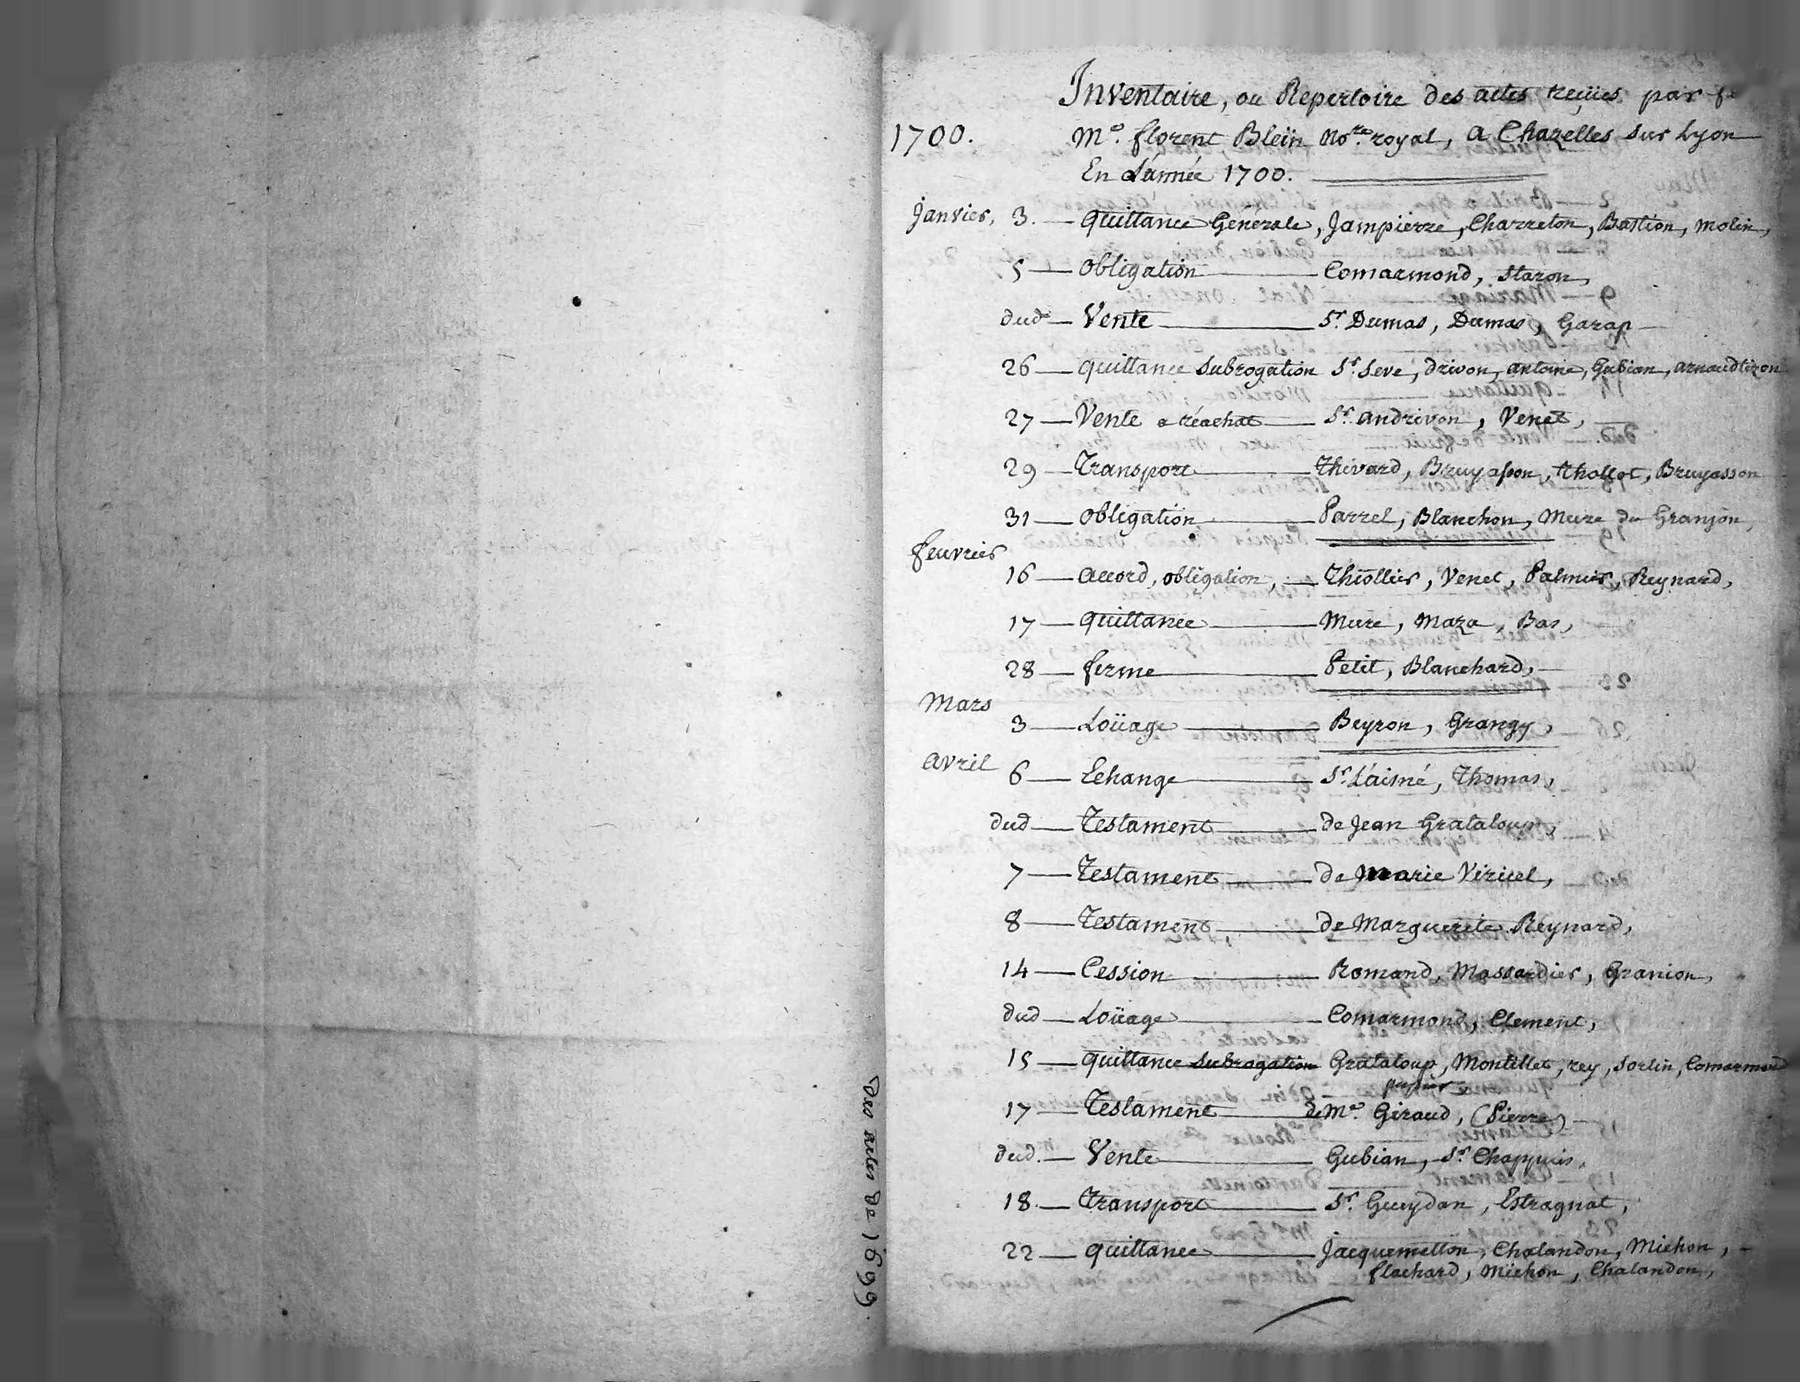 Des actes de 1699
Inventaire, ou Repertoire des actes reçües par
1700.
Me. florent Blein No.re royal, a Chazelles sur Lyon
En L'année 1700.
janvier, 3. — quittance Generale, Jampierre, Charreton, Bastion, Molin,
5 — obligation — Comarmond, Staron,
dud. — Vente — Sr. Dumas, Dumas, Garap —
26 — quittance Subrogation Sr. Seve, drivon, antoine, Gubian, arnaudtizon
27 — Vente a réachat — Sr. andrivon, Venet,
29 — Transport — Thivard, Bruyasson, thollot, Bruyasson
31 — obligation — Parrel, Blanchon, Mure du Granjon,
feuvrier
16 — accord, obligation, — Thiollier, Venet, Palmier, Reynard,
17 — quittance — Mure, Maza, Bas,
28 — ferme — Petit, Blanchard, —
Mars
3 — Loüage — Beyron, Grangy,
avril
6 — Echange — Sr. L'aisné, Thomas,
dud — Testament — de Jean Grataloup,
7 — Testament — de Marie Viricel,
8 — Testament, — de Marguerite Reynard,
14 — Cession — Romand, Massardier, Granion,
dud — Loüage — Comarmond, Clement,
15 — quittance Subrogation Grataloup, Montillet, rey, Sorlin, Comarmond
papier
17 — Testament — de Me. Giraud, (Pierre) —
dud. — Vente — Gubian, Sr. Chappuis,
18. — Transport — Sr. Gueydan, Estragnat,
22 — quittance — Jacquemetton, Chalandon, Michon, —
flachard, Michon, Chalandon,